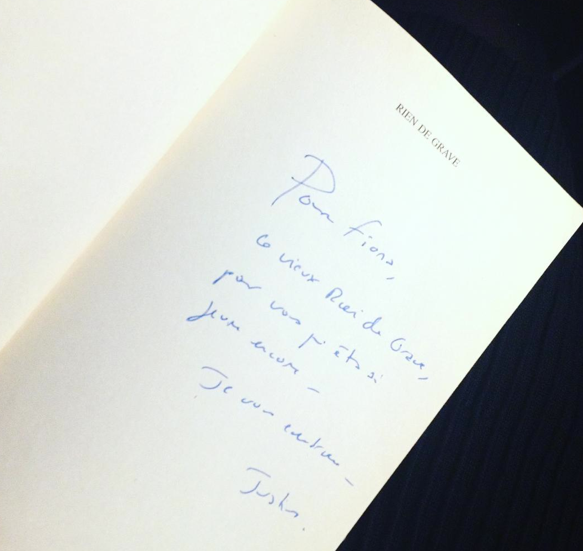 RIEN DE GRAVE
Pour Fiona,
Ce vieux Rien de Grave,
pour vous qui êtes si
jeune encore –
Je vous embrasse –
Justine.